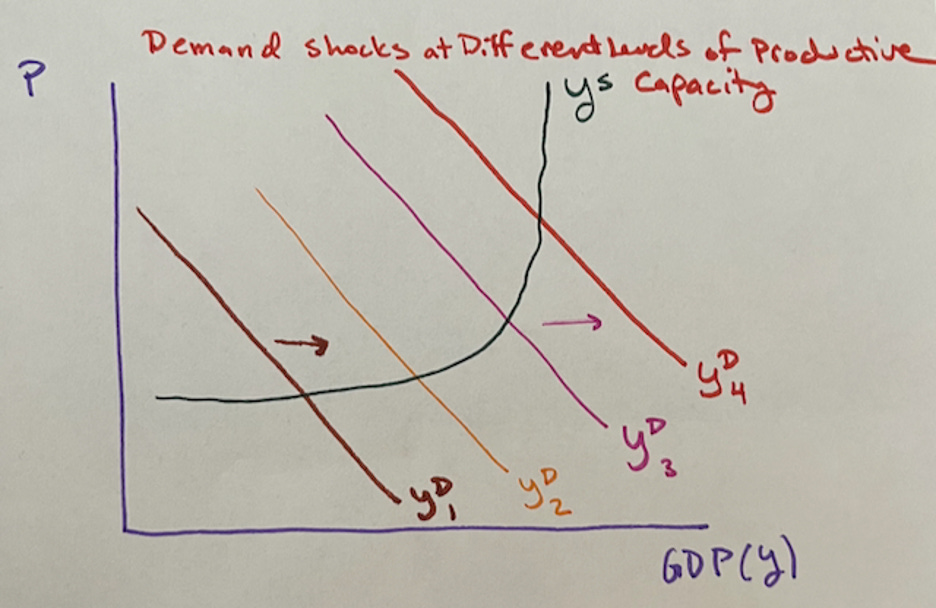 Demand shocks at Different Levels of Productive
Capacity
P
yˢ
yᴰ₄
yᴰ₃
yᴰ₂
yᴰ₁
GDP(y)